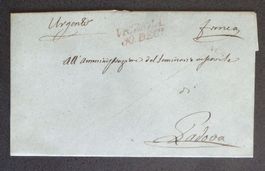 Urgente franca
VICENZA
30. DEC.
All' amministrazione del Seminario vescovile
di
Padova